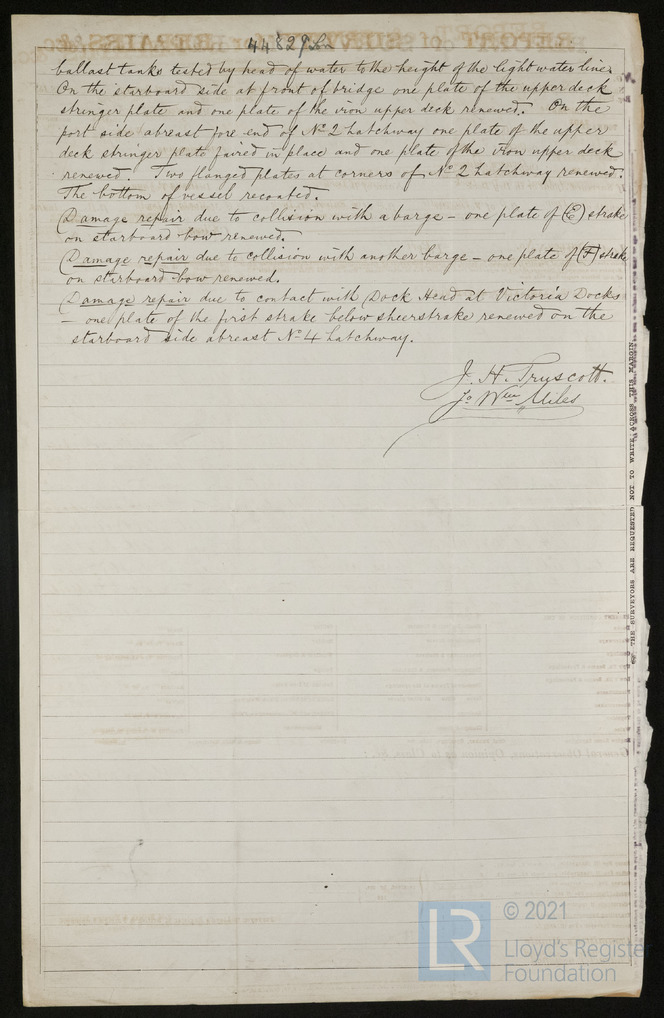 44829 Lon
ballast tanks tested by head of water to the height of the light water line.
On the starboard side at front of bridge one plate of the upper deck
stringer plate and one plate of the iron upper deck renewed. On the
port side abreast fore end of No 2 hatchway one plate of the upper
deck stringer plate faired in place and one plate of the iron upper deck
renewed. Two flanged plates at corners of No 2 hatchway renewed.
The bottom of vessel recoated.
Damage repair due to collision with a barge – one plate of (E) strake
on starboard bow renewed.
Damage repair due to collision with another barge – one plate of (F) strake
on starboard bow renewed.
Damage repair due to contact with Dock Head at Victoria Docks
– one plate of the first strake below sheerstrake renewed on the
starboard side abreast No 4 hatchway.
J. H. Truscott.
Jo Wm Miles
THE SURVEYORS ARE REQUESTED NOT TO WRITE ACROSS THIS MARGIN.
LR
© 2021
Lloyd's Register
Foundation